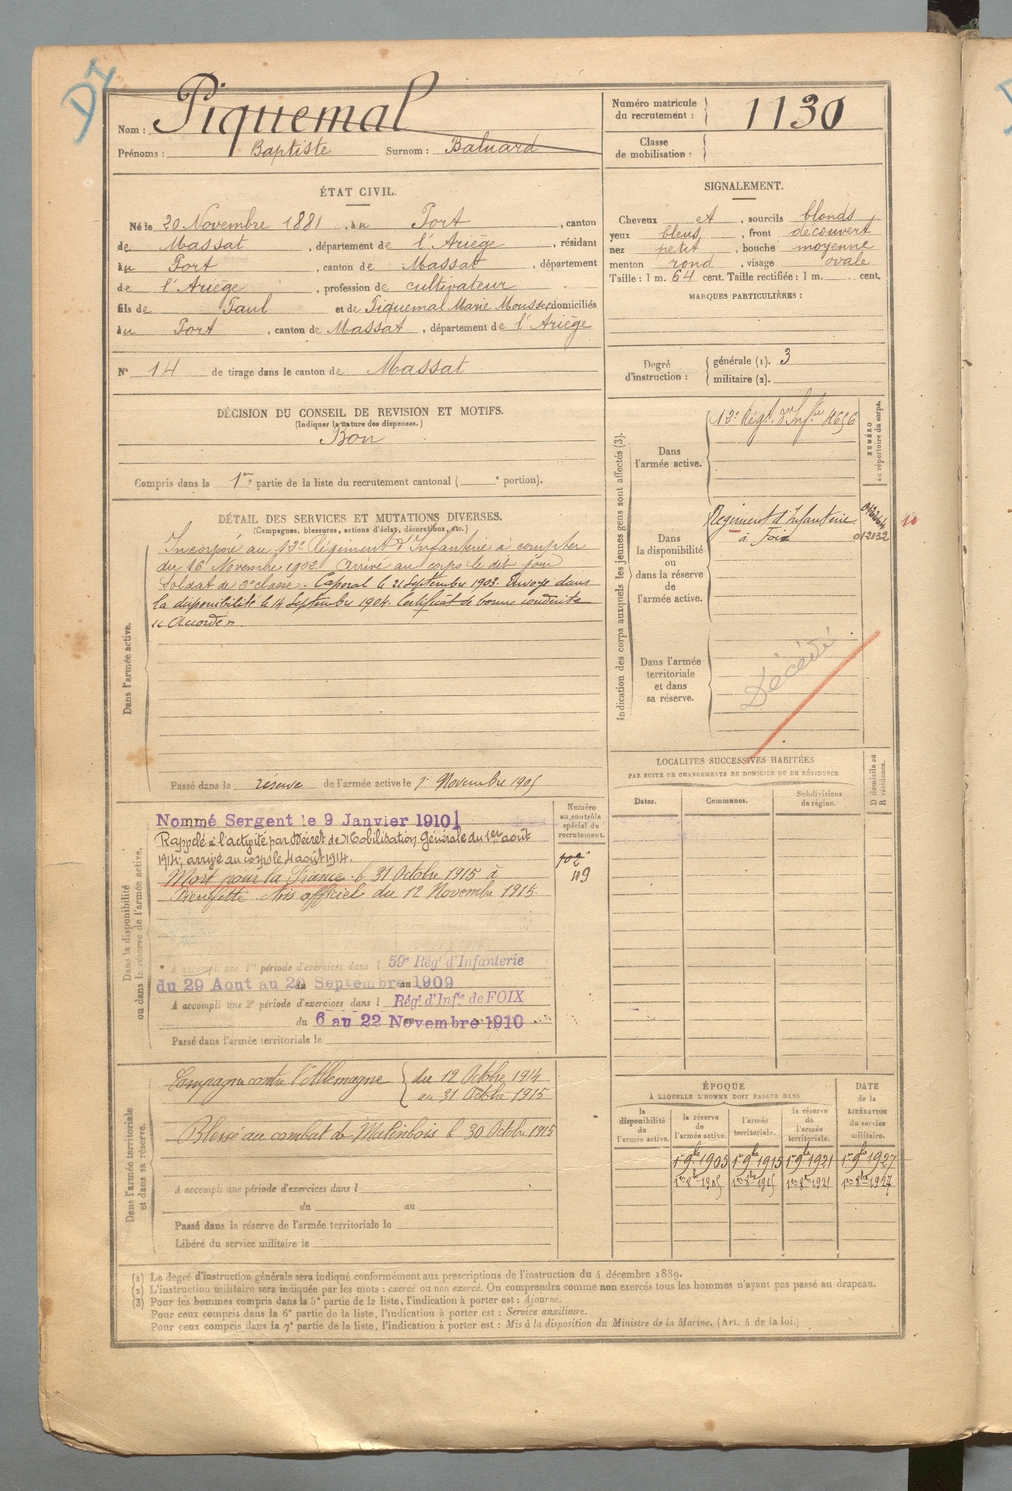 Nom : Piquemal
Prénoms : Baptiste Surnom : Baluard
Numéro matricule du recrutement : 1130
Classe de mobilisation :
ÉTAT CIVIL.
Né le 20 Novembre 1881, au Port, canton
de Massat, département de l'Ariège, résidant
au Port, canton de Massat, département
de l'Ariège, profession de cultivateur
fils de Paul et de Piquemal Marie domiciliés
au Port, canton de Massat, département de l'Ariège
N° 14 de tirage dans le canton de Massat
SIGNALEMENT.
Cheveux et, sourcils blonds
yeux bleus, front découvert
nez petit, bouche moyenne
menton rond, visage ovale
Taille : 1 m. 64 cent. Taille rectifiée : 1 m. cent.
MARQUES PARTICULIÈRES :
Degré d'instruction : générale (1). 3
militaire (2).
DÉCISION DU CONSEIL DE REVISION ET MOTIFS.
(Indiquer la nature des dispenses.)
Bon
Compris dans la 1re partie de la liste du recrutement cantonal ( e portion).
DÉTAIL DES SERVICES ET MUTATIONS DIVERSES.
(Campagnes, blessures, actions d'éclat, décorations, etc.)
Dans l'armée active.
Incorporé au Régiment d'Infanterie à compter
du 16 Novembre 1902. Arrivé au corps le dit jour
Soldat de 2e classe. Caporal le 21 Septembre 1903. Envoyé dans
la disponibilité le 14 Septembre 1904. Certificat de bonne conduite
Accordé.
Passé dans la réserve de l'armée active le 1er Novembre 1905
Indication des corps auxquels les jeunes gens sont affectés (3).
NUMÉRO au répertoire du corps.
Dans l'armée active.
Régt d'Infie 4656
Dans la disponibilité ou dans la réserve de l'armée active.
Régiment d'Infanterie
à Foix 012132
Dans l'armée territoriale et dans sa réserve.
Décédé
LOCALITÉS SUCCESSIVES HABITÉES
PAR SUITE DE CHANGEMENTS DE DOMICILE OU DE RÉSIDENCE
Dates.
Communes.
Subdivisions de région.
D domicile ou R résidence.
Dans la disponibilité ou dans la réserve de l'armée active.
Numéro au contrôle spécial du recrutement.
102
119
Nommé Sergent le 9 Janvier 1910
Rappelé à l'activité par Décret de Mobilisation Générale du 1er août
1914, arrivé au corps le 4 août 1914.
Mort pour la France le 31 Octobre 1915 à
Avis officiel du 12 Novembre 1915.
A accompli une 1re période d'exercices dans l 59e Régt d'Infanterie
du 29 Aout au Septembre 1909
A accompli une 2e période d'exercices dans l Régt d'Infie de FOIX
du 6 au 22 Novembre 1910
Passé dans l'armée territoriale le
Dans l'armée territoriale et dans sa réserve.
Campagne contre l'Allemagne du 12 Octobre 1914
au 31 Octobre 1915
Blessé au combat de le 30 Octobre 1915
A accompli une période d'exercices dans l
du au
Passé dans la réserve de l'armée territoriale le
Libéré du service militaire le
ÉPOQUE
À LAQUELLE L'HOMME DOIT PASSER DANS
la disponibilité de l'armée active.
la réserve de l'armée active.
l'armée territoriale.
la réserve de l'armée territoriale.
DATE de la LIBÉRATION du service militaire.
1er 9bre 1905 1er 9bre 1915 1er 9bre 1921 1er 9bre 1927
(1) Le degré d'instruction générale sera indiqué conformément aux prescriptions de l'instruction du 4 décembre 1889.
(2) L'instruction militaire sera indiquée par les mots : exercé ou non exercé. On comprendra comme non exercés tous les hommes n'ayant pas passé au drapeau.
(3) Pour les hommes compris dans la 5e partie de la liste, l'indication à porter est : Ajourné.
Pour ceux compris dans la 6e partie de la liste, l'indication à porter est : Service auxiliaire.
Pour ceux compris dans la 7e partie de la liste, l'indication à porter est : Mis à la disposition du Ministre de la Marine. (Art. 4 de la loi.)